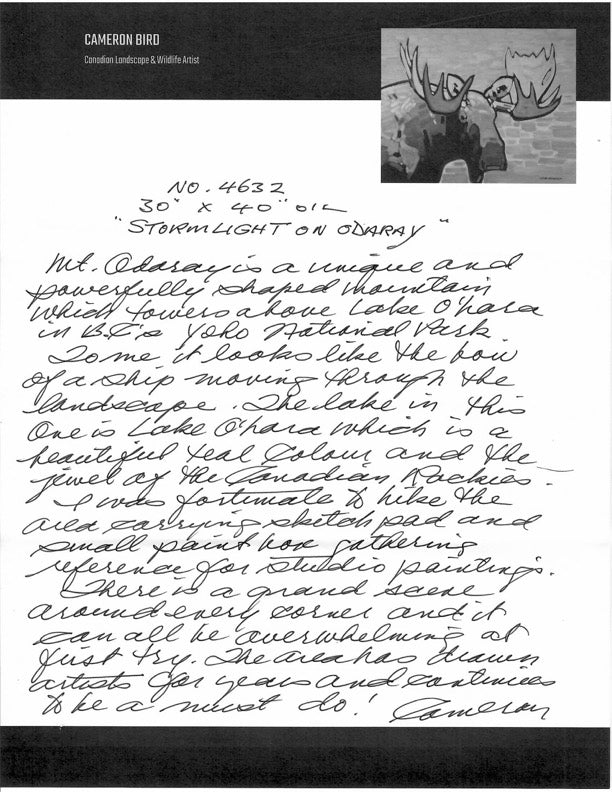 CAMERON BIRD
Canadian Landscape & Wildlife Artist
NO. 4632
30" x 40" OIL
"STORMLIGHT ON ODARAY"
Mt. Odaray is a unique and
powerfully shaped mountain
which towers above Lake O'hara
in B.C.'s Yoho National Park.
To me it looks like the bow
of a ship moving through the
landscape. The lake in this
one is Lake O'hara which is a
beautiful teal colour and the
jewel of the Canadian Rockies.
I was fortunate to hike the
area carrying sketch pad and
small paint box gathering
reference for studio paintings.
There is a grand scene
around every corner and it
can all be overwhelming at
first try. The area has drawn
artists for years and continues
to be a must do! Cameron